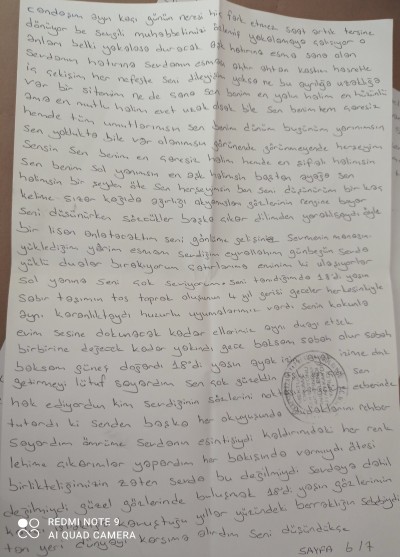 candosum ayın kaçı günün neresi hiç fark etmez saat artık tersine
dönüyor be sevgili muhabbetimizi yakalamaya çalışıyor o
anları belki yakalasa duracak aşk hatırına esma sana olan
Serdanın hatırına Serdanın esmaya
iç çekişim her nefeste seni dileyişim yoksa ne bu ayrılığa uzaklığa
var bir sitemim ne de sana sen benim en yakın halim en hüzünlü
ama en mutlu halim evet uzak olsak bile sen benim hem çaresiz
hemde tüm umutlarımsın sen benim dünüm bugünüm yarınımsın
sen yoklukta bile var olanımsın görünende görünmeyende herşeyim
sensin sen benim en çaresiz halim hemde en şifalı halimsin
sen benim sol yanımsın en aşk halimsin baştan ayağa sen
halimsin bir şeyden öte sen herşeyimsin ben seni düşünürüm bir kaç
kelime sızar kağıda ağırtığı akşamları gözlerinin rengine boyar
seni düşünürken sözcükler başka çıkar dilimden yaralasaydı öyle
bir lisan anlatacaktım seni gönlüme gelişine Sevmenin manasını
yüklediğim yarim esmam sevdiğim eyvallahım günbegün Serda
yüklü dualar bırakıyorum çatırlarına eminim ki ulaşıyorlar
sol yanına seni çok seviyorum. seni tanıdığımda 18'di yaşın
sabır taşımın tas toprak oluşunun 4 yıl geceler herkesinkiyle
aynı karanlıktaydı huzurlu uyumalarımız vardı senin kokunda
evim sesine dokunacak kadar ellerimiz aynı duayı etsek
birbirine değecek kadar yakındı gece baksam sabah olur sabah
baksam güneş doğardı 18'di yaşın ayak izin izime denk
getirmeyi lütuf sayardım sen çok güzeldin sen
hak ediyordun kim serdiğinin sözlerini cebemde
tutardı ki senden başka her okuyuşunda rehber
sayardım ömrüme Serdanın esintisiydi kaldırımdaki her renk
lehime çıkarımlar yapardım her bakışında varmıydı ötesi
birlikteliğimizin zaten serda bu değilmiydi Serdaya dahil
değilmiydi güzel gözlerinde buluşmak 18'di yaşın gözlerinin
kavuştuğu yıllar yüzündeki berraklığın sebebiydi
ton yeni dünyayı karşıma alırdım seni düşündükçe
SAYFA 6/7
REDMI NOTE 9
AI QUAD CAMERA